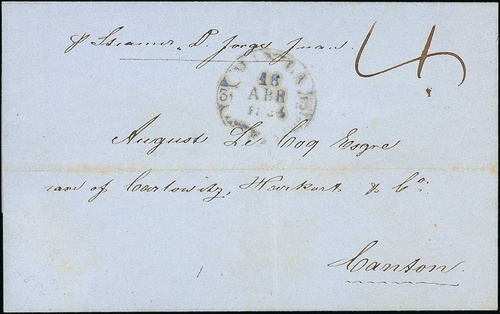 p Steamer D. Jorge Juan
4
MANILA
16
ABR
August Le Coq Esqre
care of Carlowitz, Harkort & Co.
Canton.